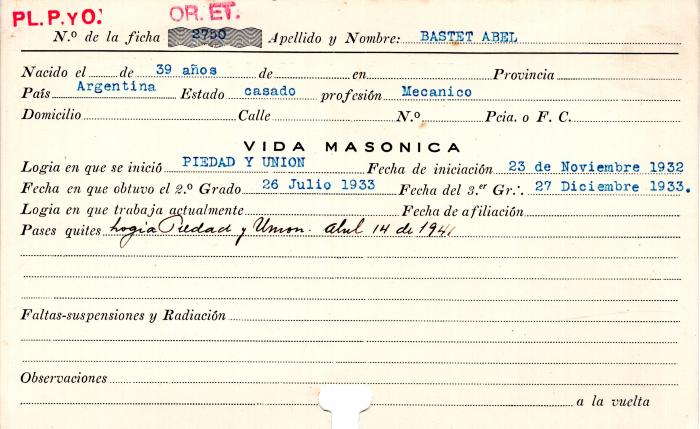 PL. P. y O. OR. ET.
N.º de la ficha 2750 Apellido y Nombre: BASTET ABEL
Nacido el de 39 años de en Provincia
País Argentina Estado casado profesión Mecanico
Domicilio Calle N.º Pcia. o F. C.
VIDA MASONICA
Logia en que se inició PIEDAD Y UNION Fecha de iniciación 23 de Noviembre 1932
Fecha en que obtuvo el 2.º Grado 26 Julio 1933 Fecha del 3.er Gr∴ 27 Diciembre 1933.
Logia en que trabaja actualmente Fecha de afiliación
Pases quites Logia Piedad y Union. abril 14 de 1941
Faltas-suspensiones y Radiación
Observaciones
a la vuelta